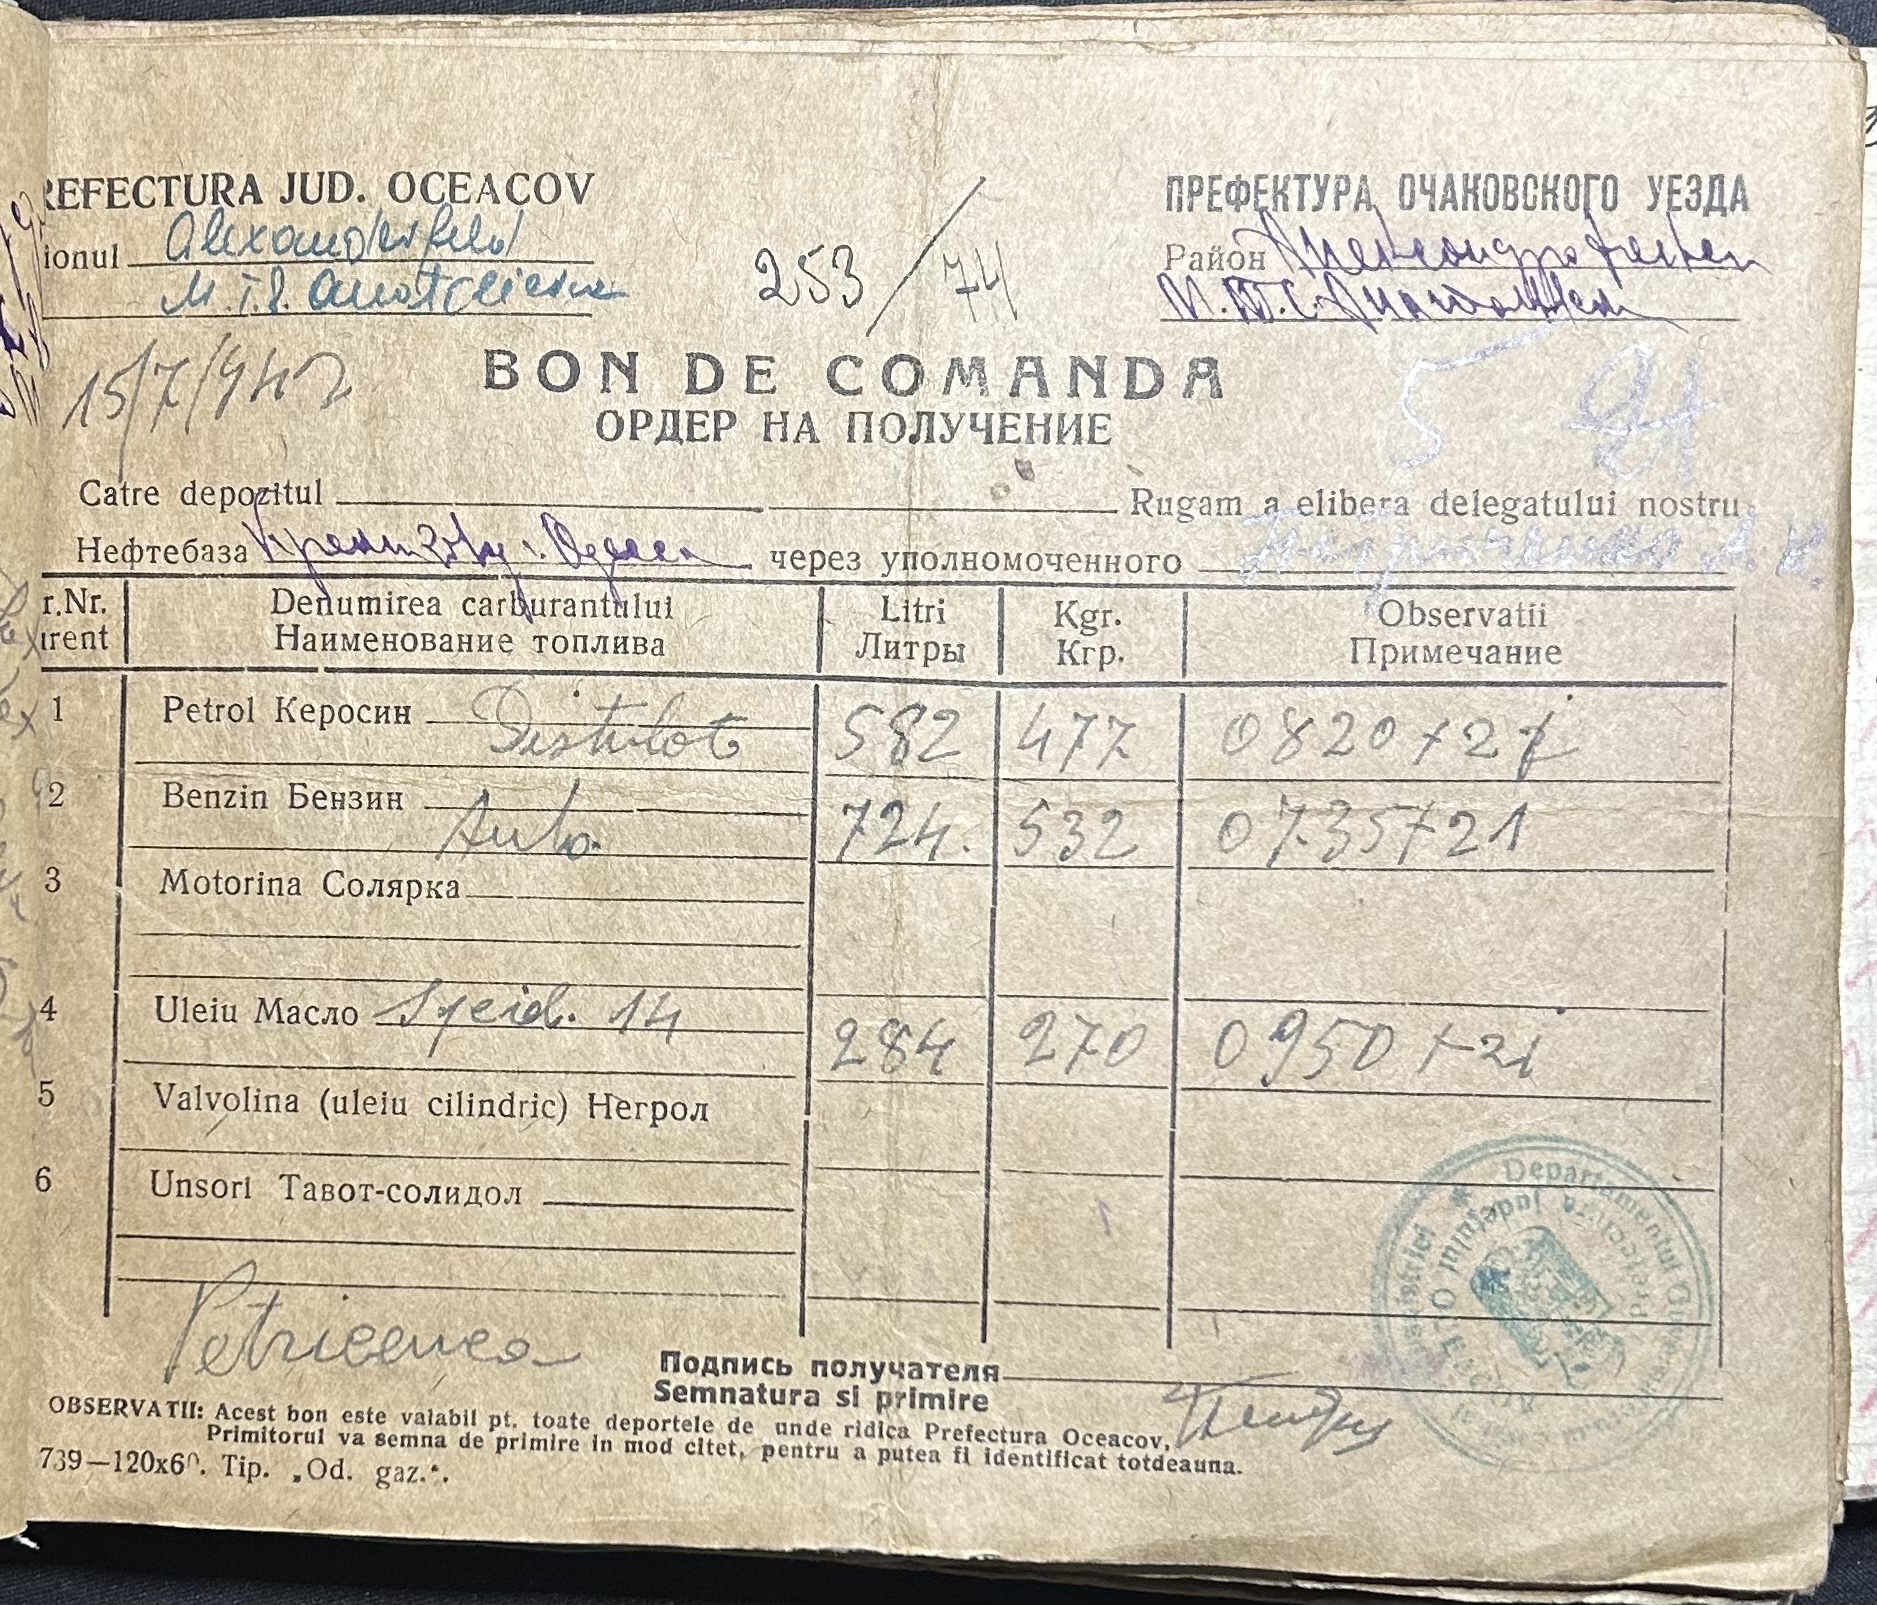 REFECTURA JUD. OCEACOV
ПРЕФЕКТУРА ОЧАКОВСКОГО УЕЗДА
ionul Alexanderfeld
Район
M.T.S.
М.Т.С.
253/74
15/7/942
BON DE COMANDA
ОРДЕР НА ПОЛУЧЕНИЕ
5
Catre depozitul Rugam a elibera delegatului nostru
Нефтебаза г. Одесса через уполномоченного
r.Nr. Denumirea carburantului Litri Kgr. Observatii
irent Наименование топлива Литры Кгр. Примечание
1 Petrol Керосин Distilat 582 477 0820+21
2 Benzin Бензин Auto 724. 532 0735+21
3 Motorina Солярка
4 Uleiu Масло 14 284 270 0950+21
5 Valvolina (uleiu cilindric) Негрол
6 Unsori Тавот-солидол
Departamentul
Prefectura Județului OCEACOV
Petricenco
Подпись получателя
Semnatura si primire
OBSERVATII: Acest bon este valabil pt. toate deportele de unde ridica Prefectura Oceacov,
Primitorul va semna de primire in mod citet, pentru a putea fi identificat totdeauna.
739—120x60. Tip. „Od. gaz.“.